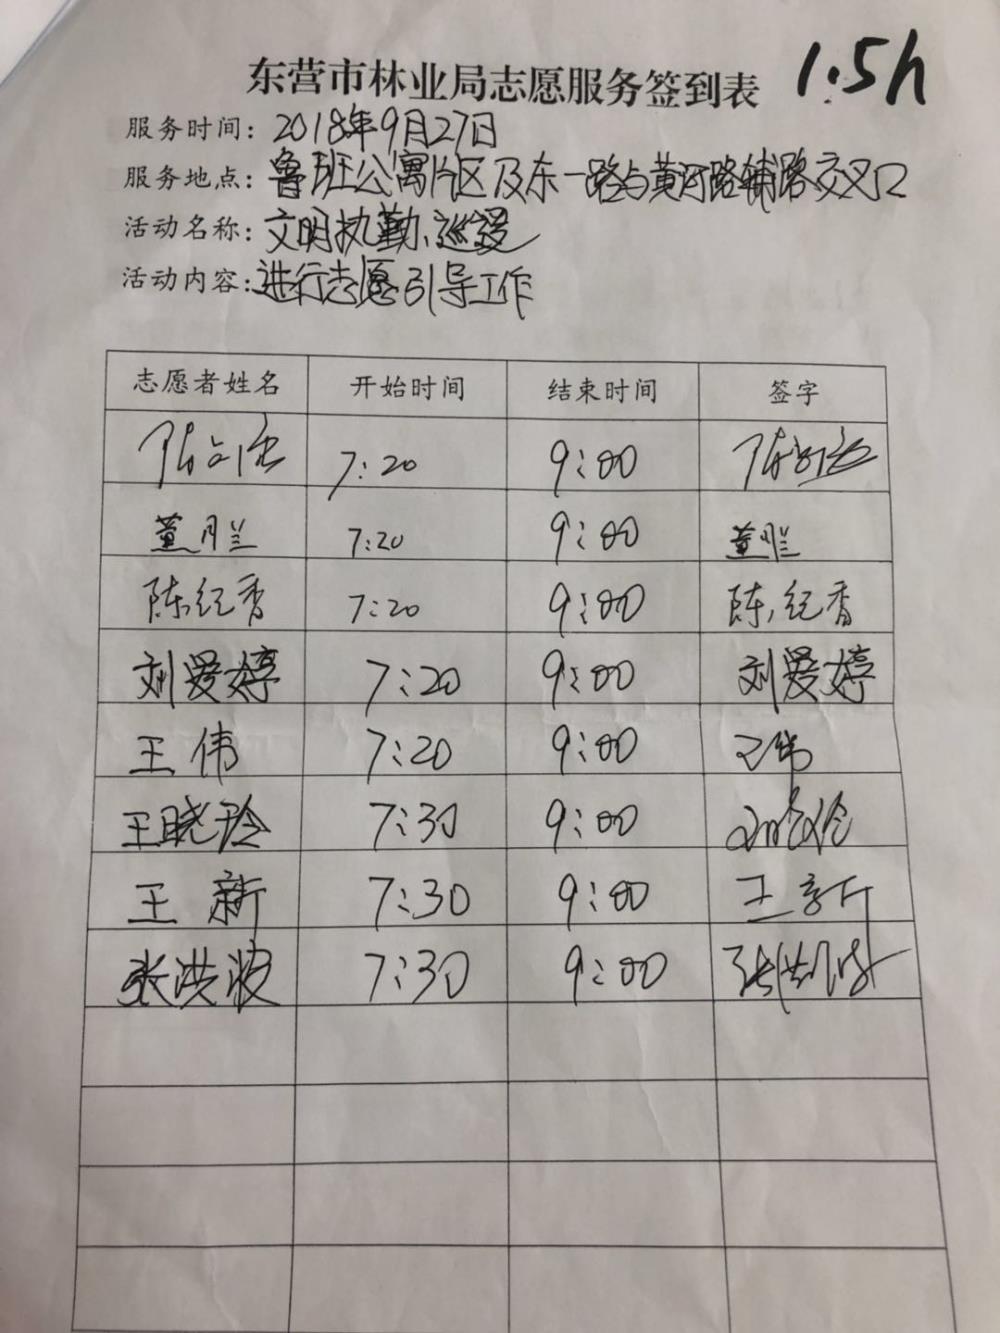 东营市林业局志愿服务签到表 1.5h
服务时间: 2018年9月27日
服务地点: 鲁班公寓片区及东一路与黄河路辅路交叉口
活动名称: 文明执勤、巡逻
活动内容: 进行志愿引导工作
志愿者姓名 开始时间 结束时间 签字
7:20 9:00
董月兰 7:20 9:00 董月兰
陈纪香 7:20 9:00 陈纪香
刘爱婷 7:20 9:00 刘爱婷
王伟 7:20 9:00 王伟
王晓玲 7:30 9:00
王新 7:30 9:00 王新
张洪波 7:30 9:00 张洪波